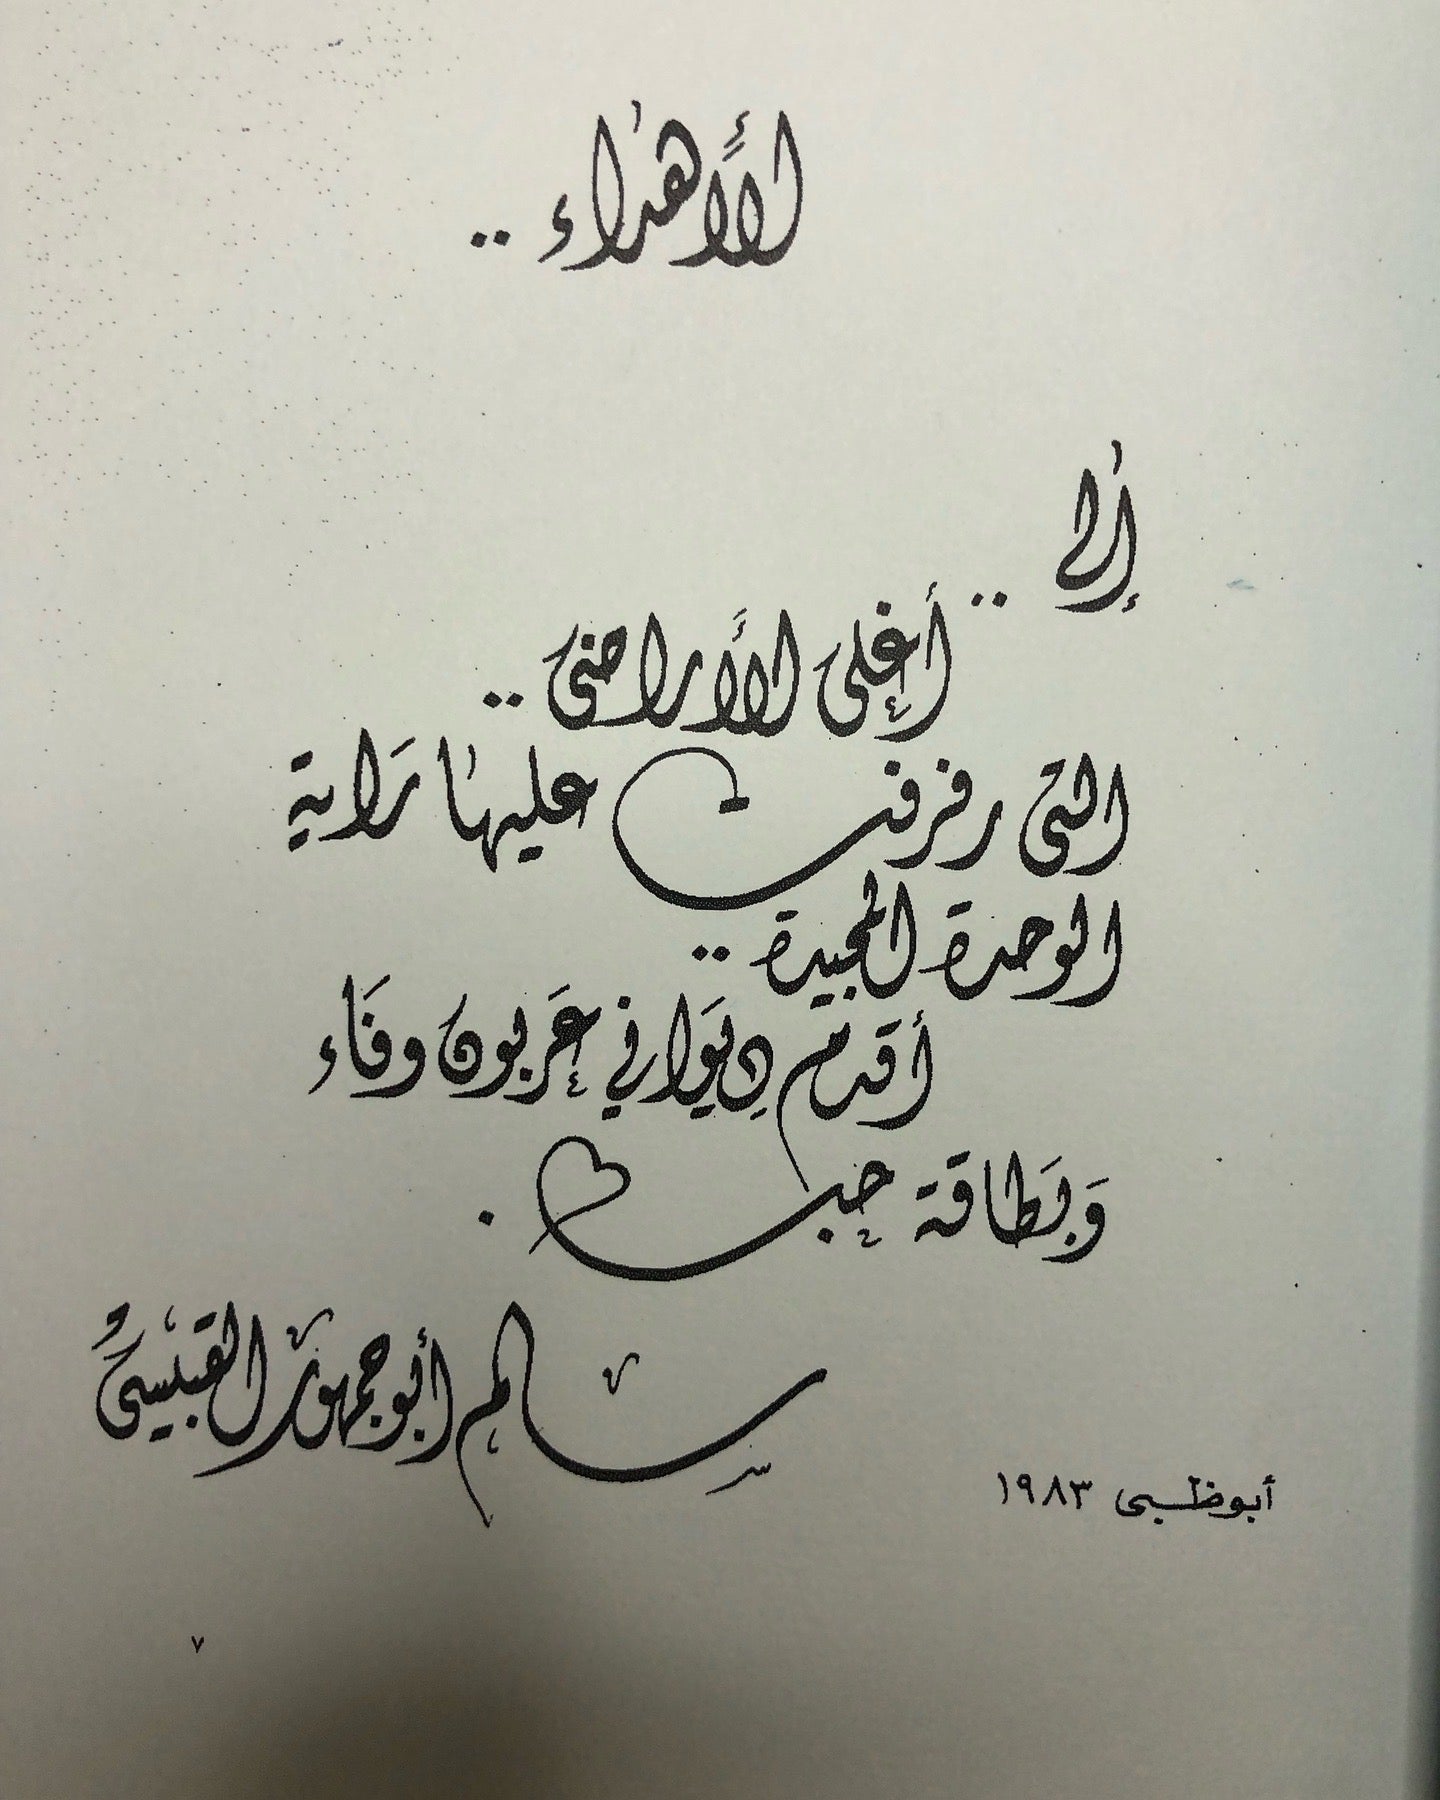 الأهداء ..
إلى ..
أغلى الأراضى ..
التى رفرفت عليها رَاية
الوحدة المجيدة ..
أقدم دِيوَاني عَربون وفَاء
وَبَطاقة حب .
سالم أبو جمهور القبيسي
أبوظبى ١٩٨٣
٧